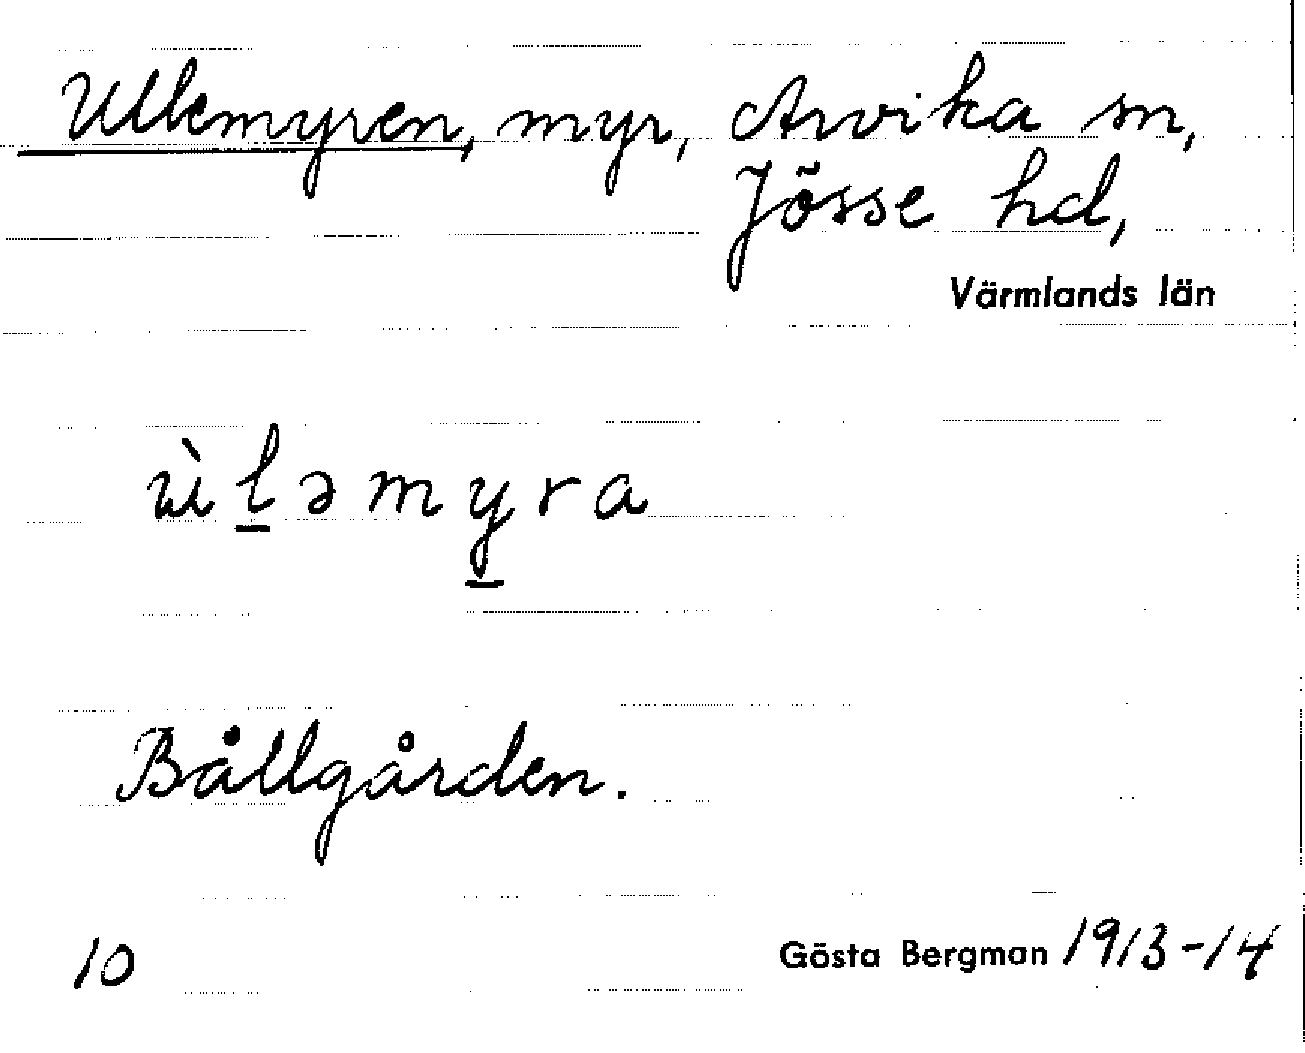 Ullemyren, myr, Arvika sn,
Jösse hd,
Värmlands län
ùl̠əmy̠ra
Bållgården.
10 Gösta Bergman 1913-14